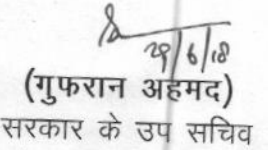 29/6/18
(गुफरान अहमद)
सरकार के उप सचिव